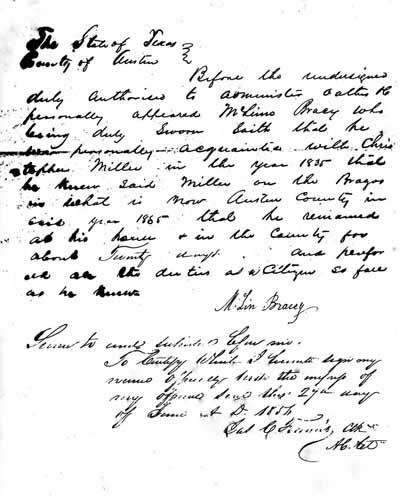 The State of Texas
County of Austin
Before the undersigned
duly authorised to administer Oaths &c
personally appeared McLinn Bracy who
being duly Sworn Saith that he
was personally acquainted with Chris
topher Miller in the year 1835 that
he knew said Miller on the Brazos
in what is now Austin County in
said year 1865 that he remained
at his house & in the County for
about Twenty days. and perfor
ed all the duties as a Citizen so far
as he knew
McLin Bracey
Sworn to and subscribed before me.
To Certify Which I hereunto sign my
name officially with the impress of
my office seal this 27th day
of June A D. 1856
Clk